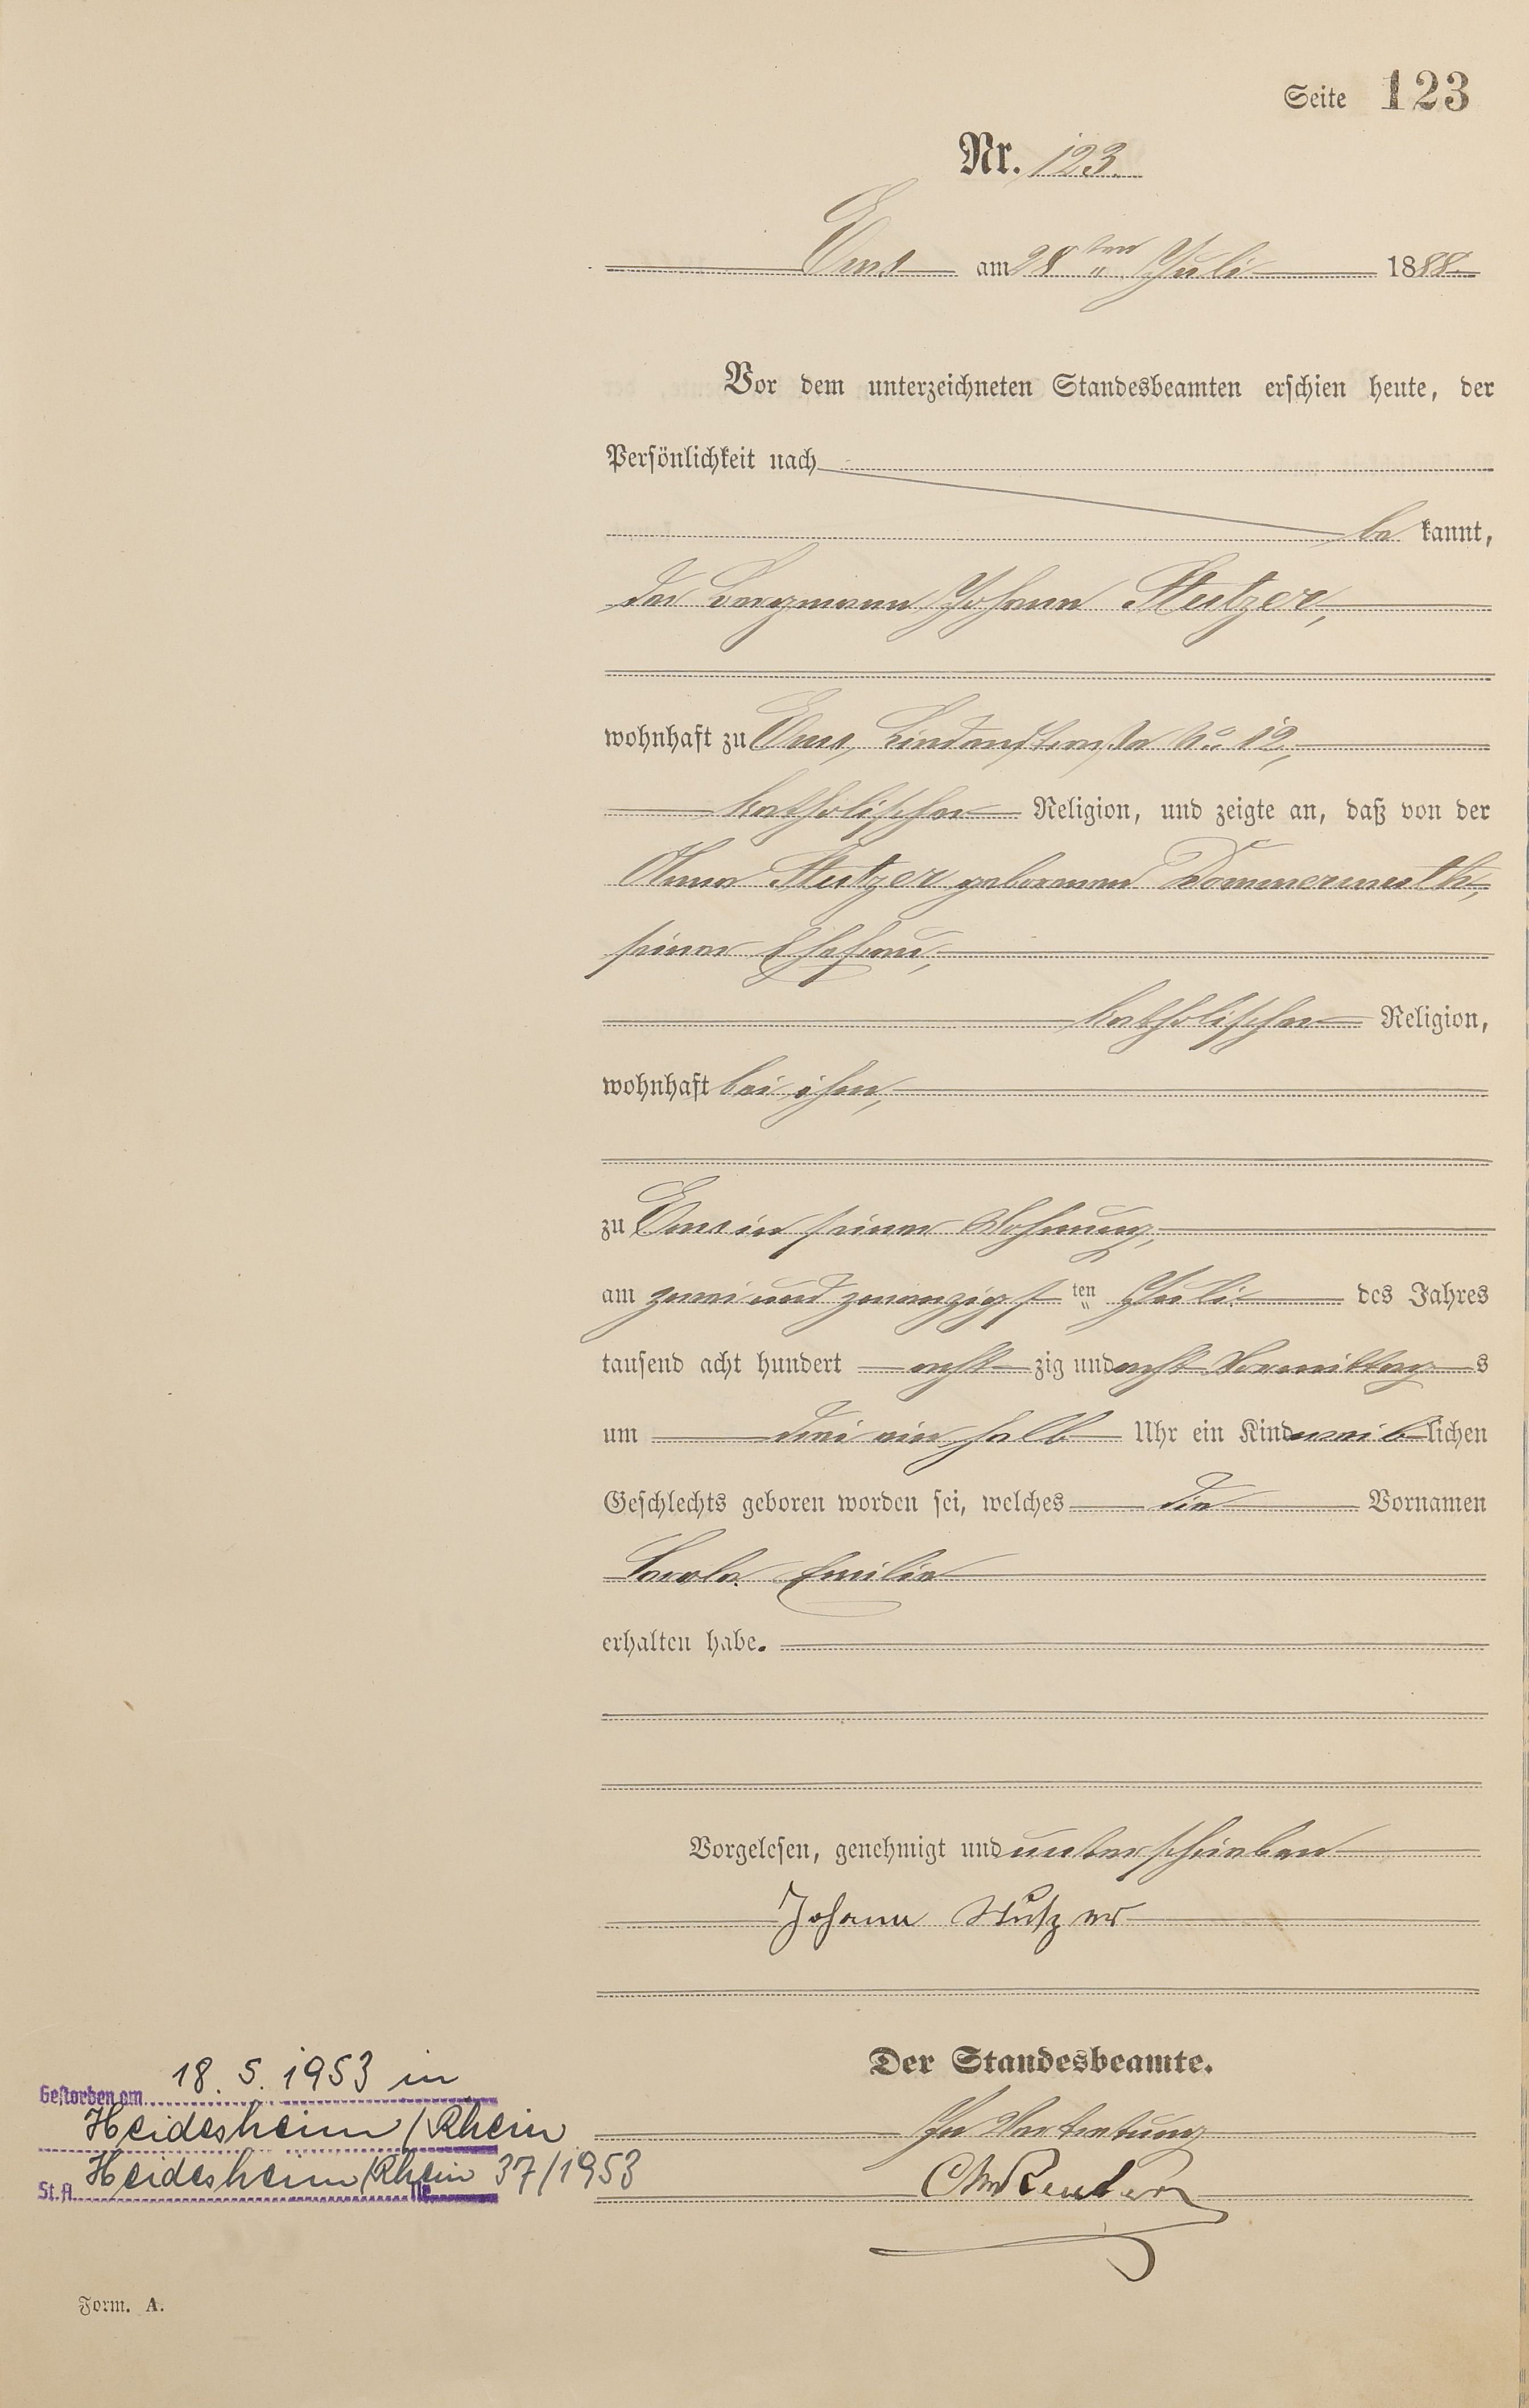 Seite 123
Nr. 123.
Ems am 28ten Juli 1888.
Vor dem unterzeichneten Standesbeamten erschien heute, der
Persönlichkeit nach
be kannt,
der Bergmann Johann Stutzer,
wohnhaft zu Ems, Lindenstraße No. 12,
katholischer Religion, und zeigte an, daß von der
Anna Stutzer geborenen Dommermuth,
seiner Ehefrau,
katholischer Religion,
wohnhaft bei ihm,
zu Ems in seiner Wohnung,
am zwei und zwanzigsten Juli des Jahres
tausend acht hundert acht zig und acht Vormittags
um drei ein halb Uhr ein Kind weiblichen
Geschlechts geboren worden sei, welches die Vornamen
Emilie
erhalten habe.
Vorgelesen, genehmigt und unterschrieben
Johann Stutzer
Der Standesbeamte.
In Vertretung
Gestorben am 18. 5. 1953 in
Heidesheim/Rhein
St.A. Heidesheim/Rhein Nr. 37/1953
Form. A.